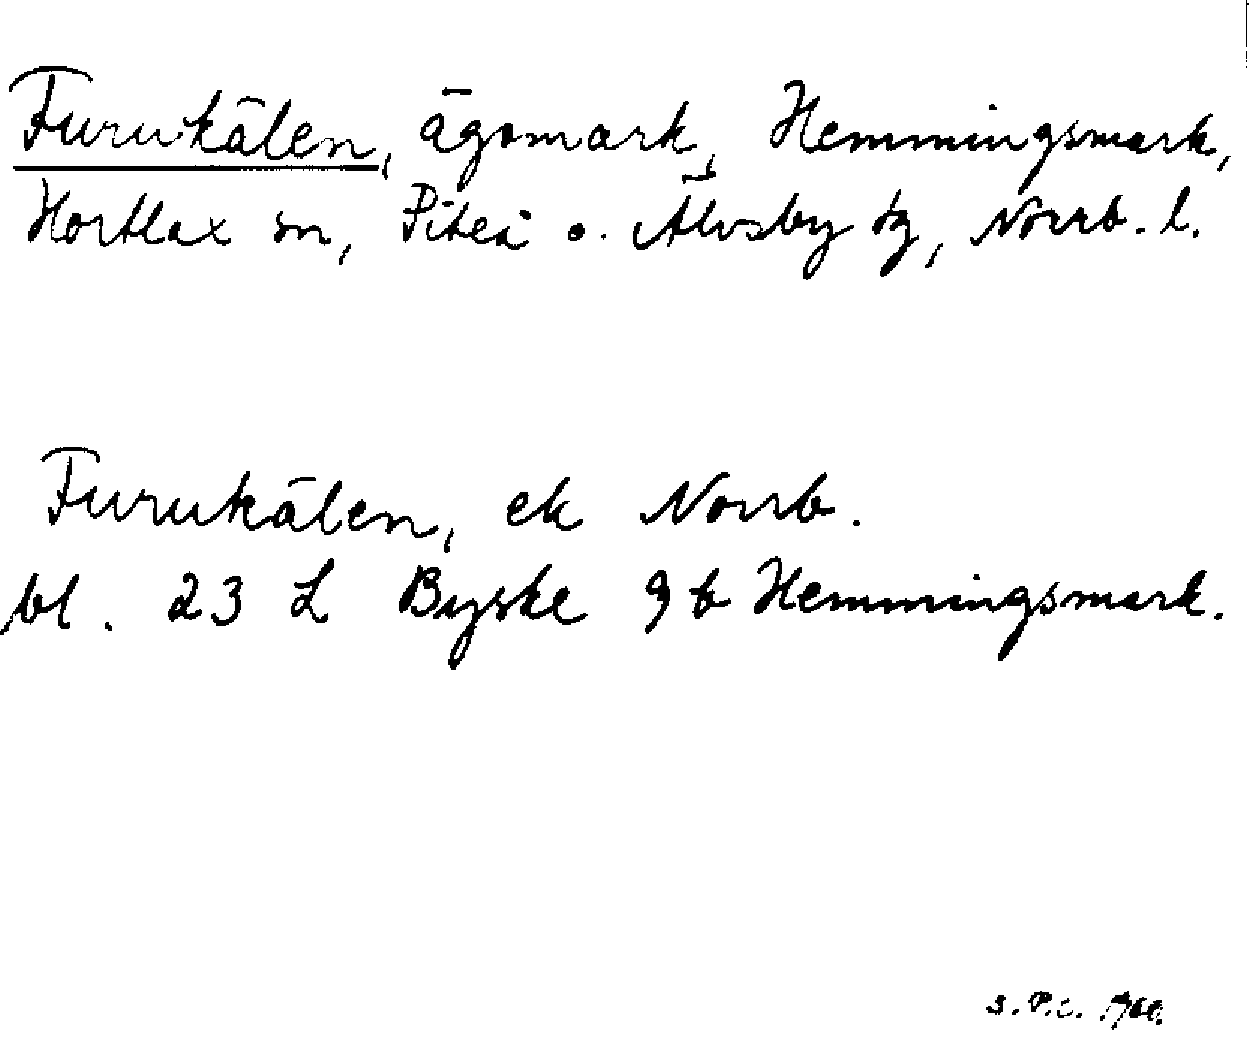 Furukälen, ägomark, Hemmingsmark,
Hortlax sn, Piteå o. Älvsby tg, Norrb. l.
Furukälen, ek Norrb.
bl. 23 L Byske 9 b Hemmingsmark.
S.P.C.